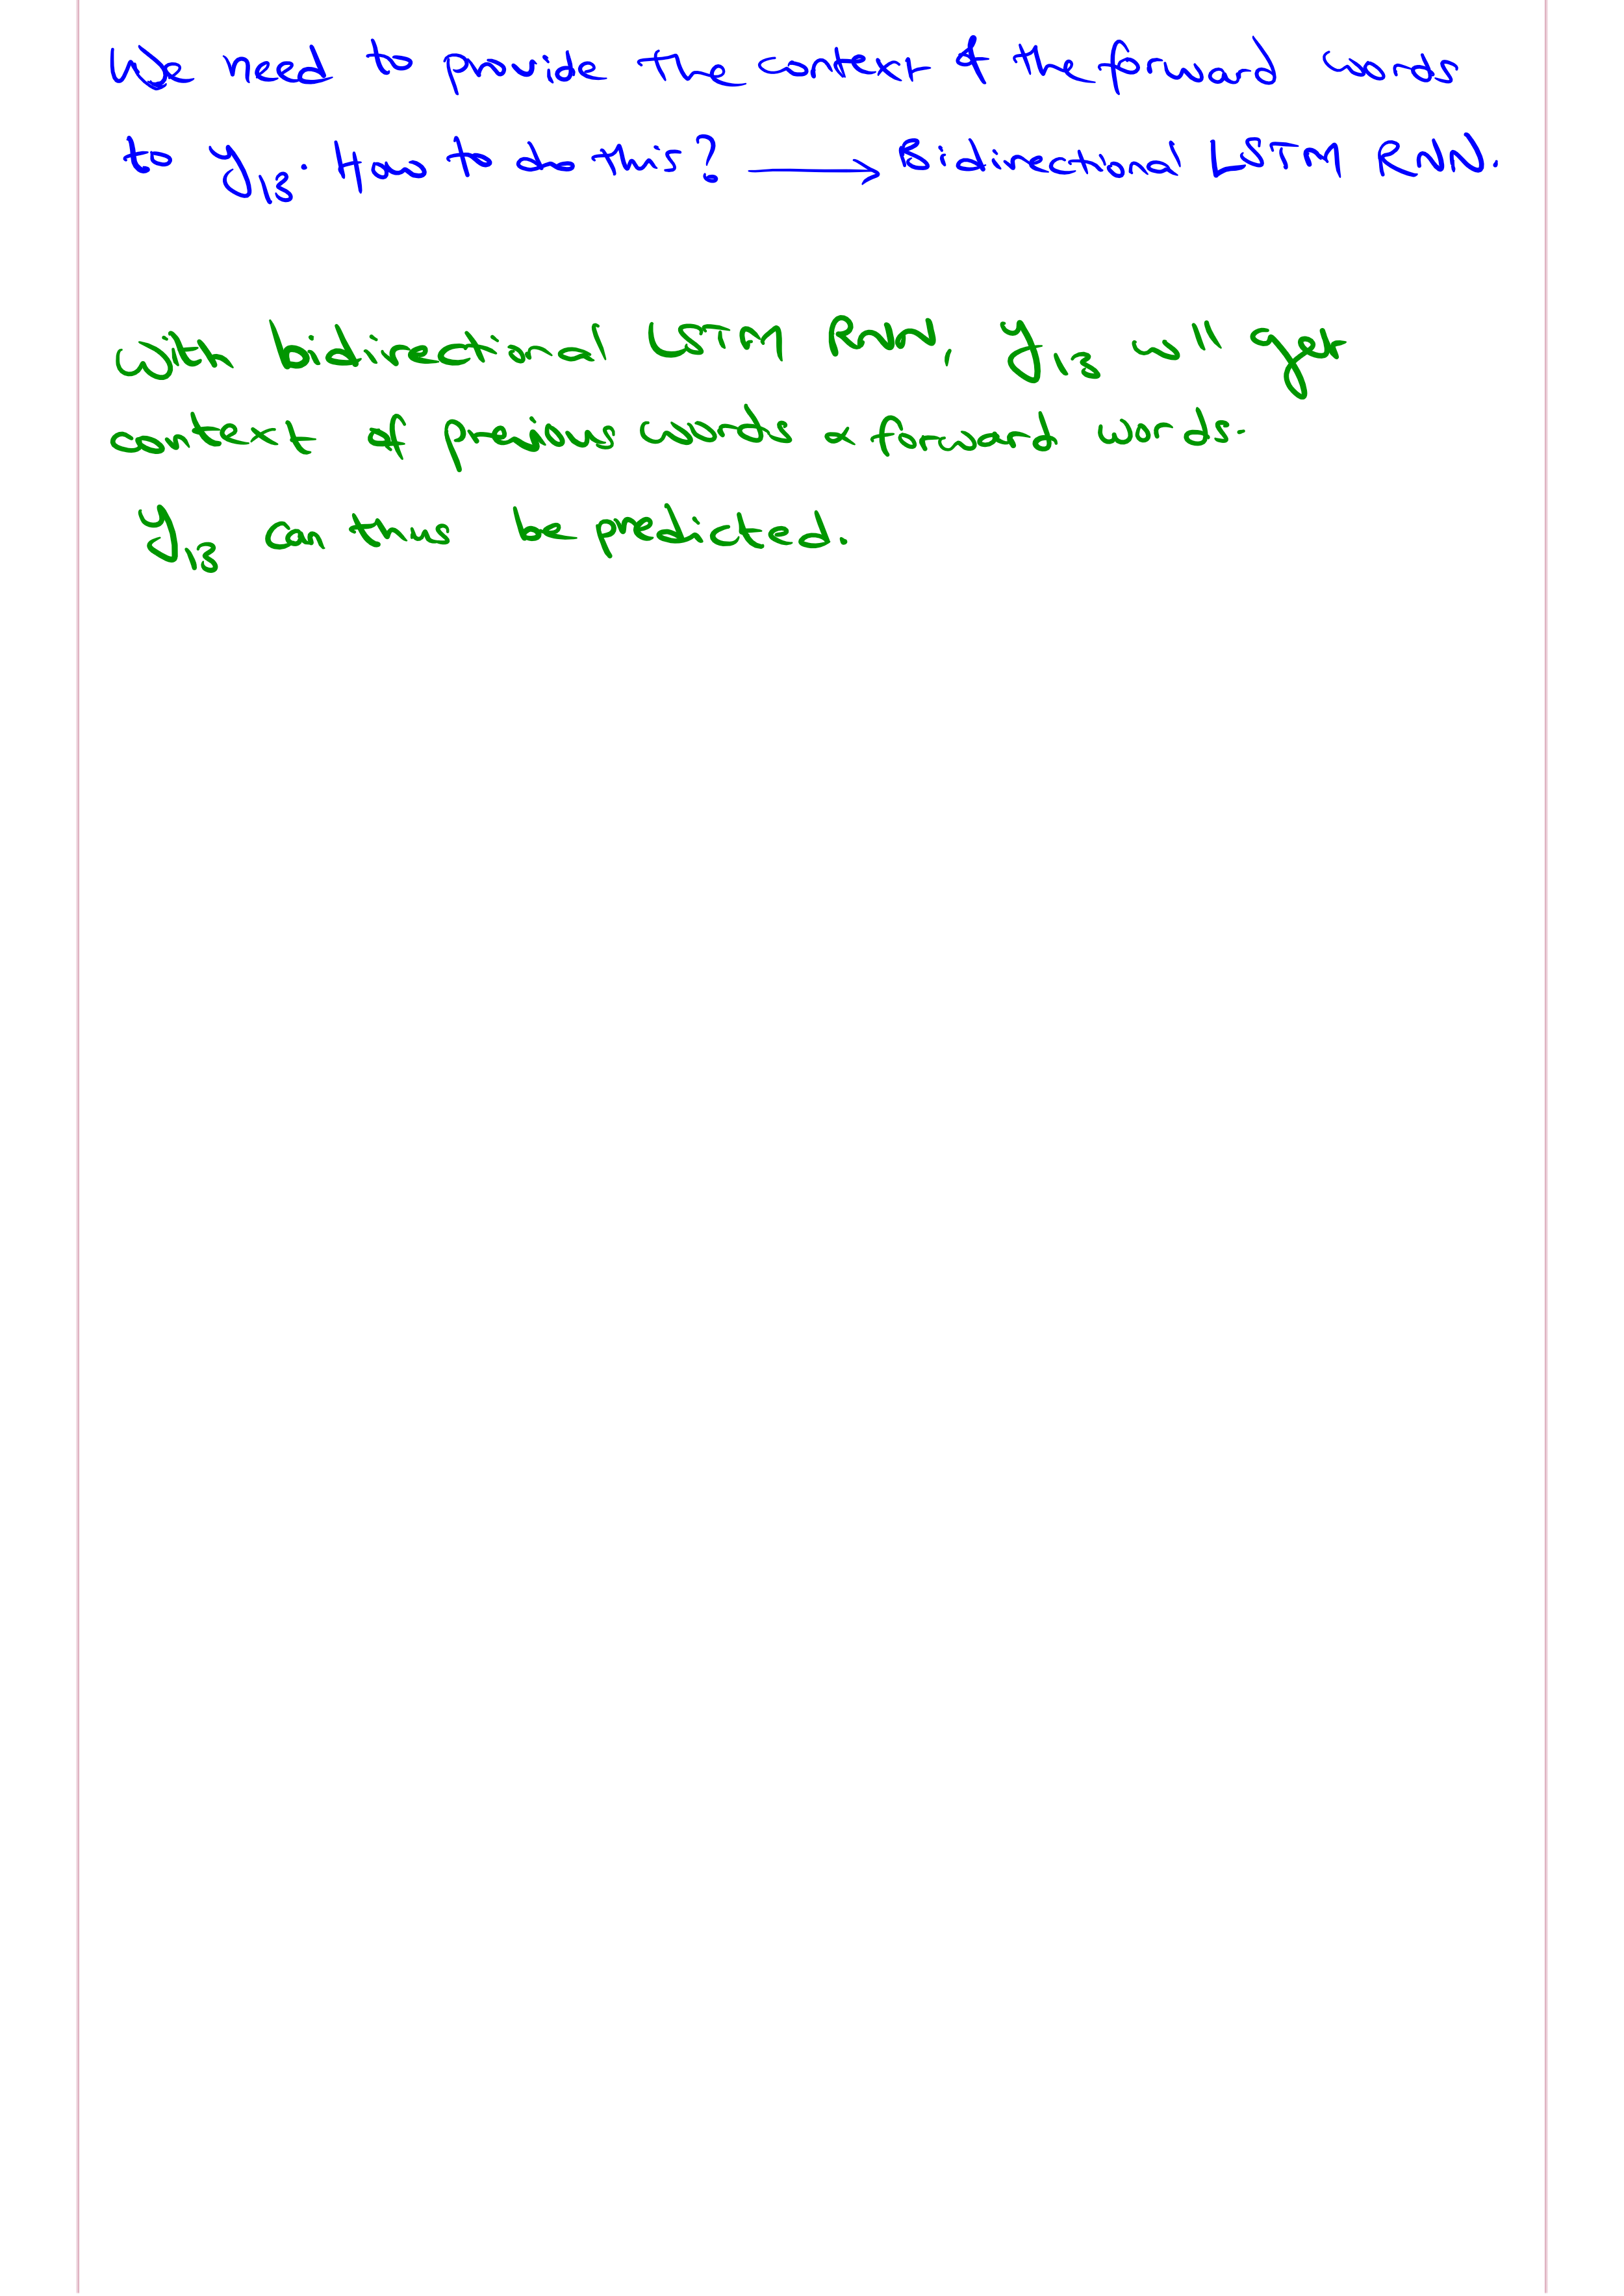 We need to provide the context of the forward words
to y₁₃. How to do this? → Bidirectional LSTM RNN.
With bidirectional LSTM RNN, y₁₃ will get
context of previous words & forward words.
y₁₃ can thus be predicted.